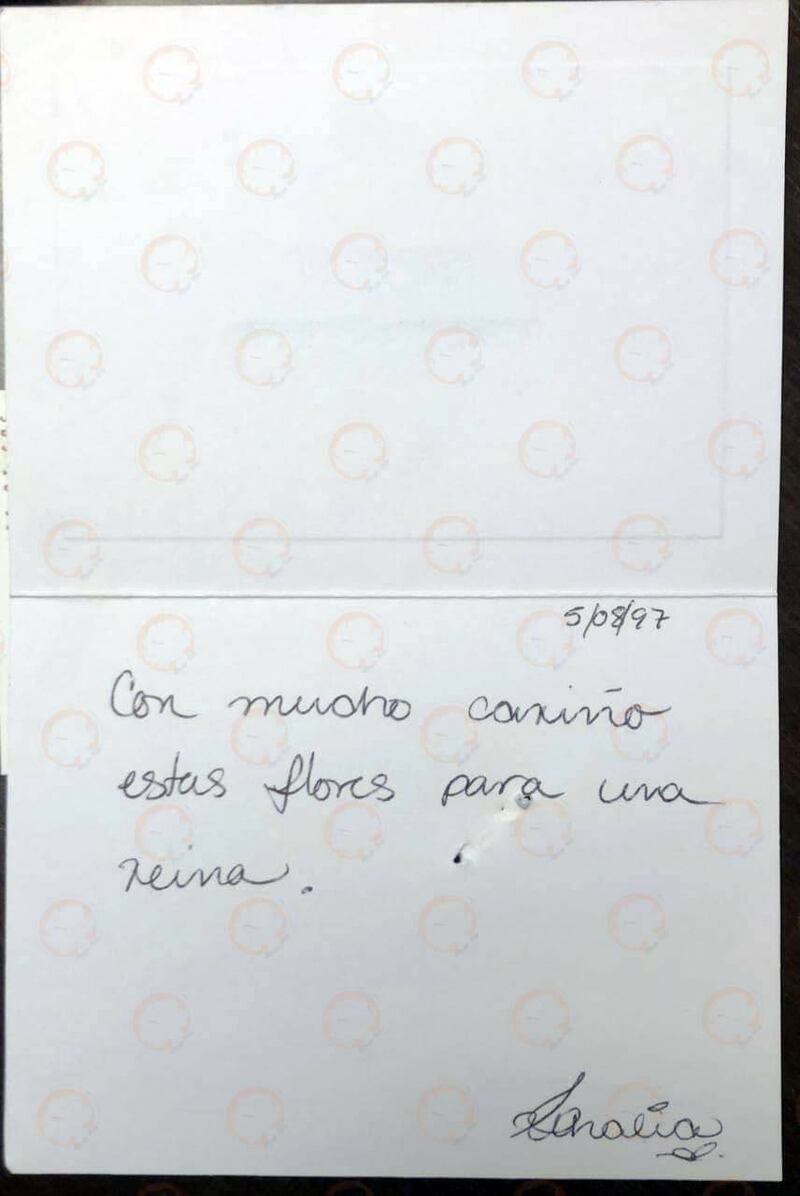 5/08/97
Con mucho cariño
estas flores para una
reina.